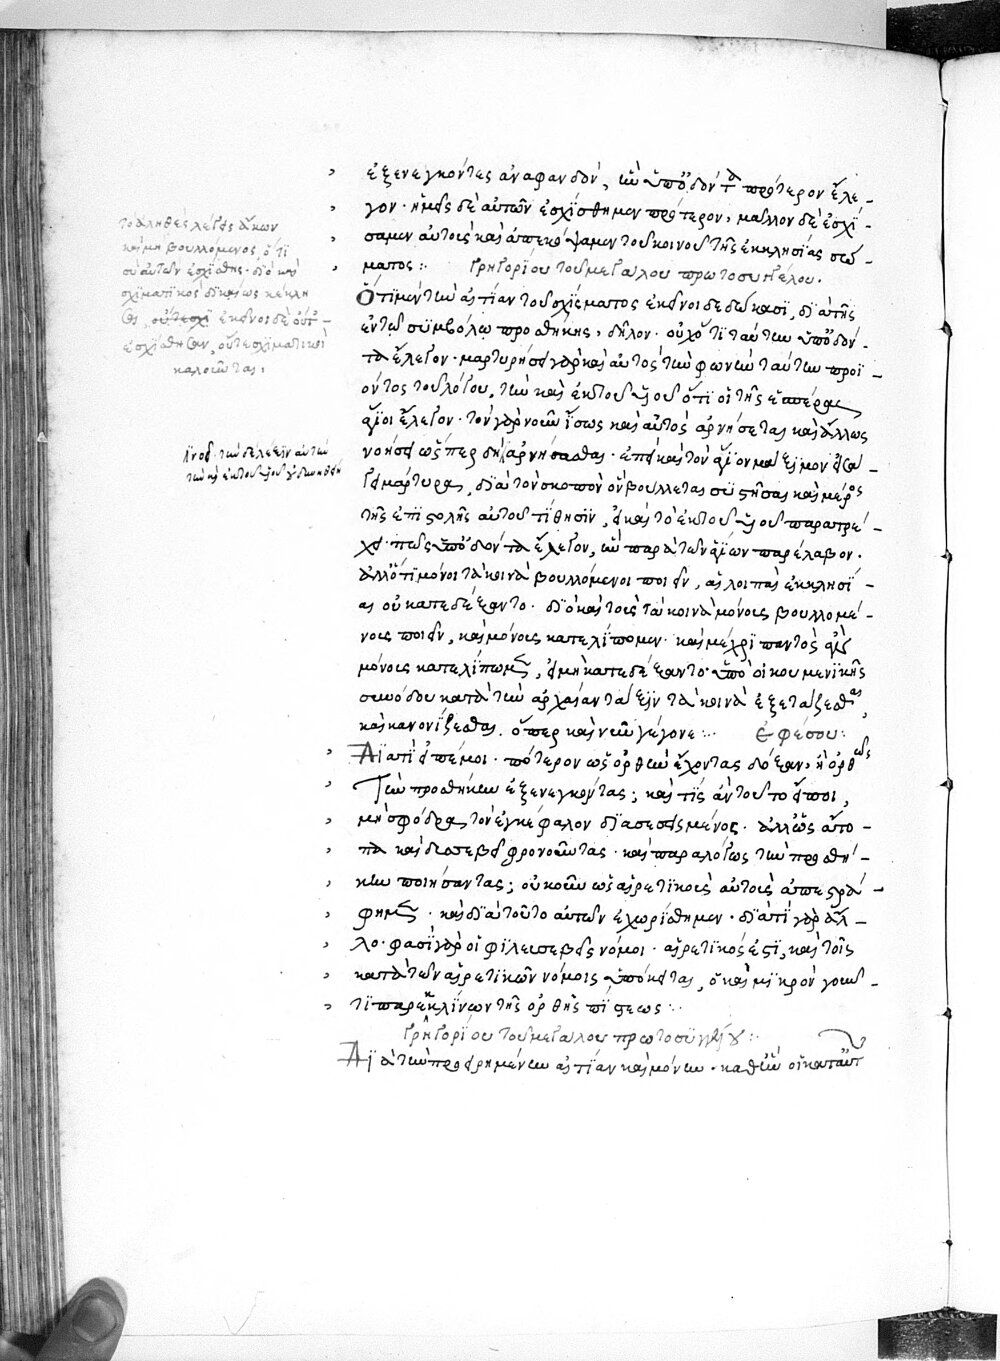 ἐξενεγκόντες ἀναφανδόν, ἣν ὑπ' ὀδόντα πρότερον ἔλε-
γον· ἡμεῖς δὲ αὐτῶν ἐσχίσθημεν πρότερον, μᾶλλον δὲ ἐσχί-
σαμεν αὐτοὺς καὶ ἀπεκόψαμεν τοῦ κοινοῦ τῆς ἐκκλησίας σώ-
ματος:
Γρηγορίου τοῦ μεγάλου πρωτοσυγγέλου.
Ὅτι μὲν τὴν αἰτίαν τοῦ σχίσματος ἐκεῖνοι δεδώκασι, διὰ τῆς
ἐν τῷ συμβόλῳ προσθήκης, δῆλον· οὐχ ὅτι ταύτην ὑπ' ὀδόν-
τα ἔλεγον· μαρτυρήσει γὰρ καὶ αὐτὸς τὴν φωνὴν ταύτην προϊ-
όντος τοῦ λόγου, τὴν καὶ ἐκ τοῦ υἱοῦ ὅτι οἱ τῆς ἑσπέρας
ἅγιοι ἔλεγον· τὸν γὰρ νοῦν ἴσως καὶ αὐτὸς ἀρνήσεται καὶ ἄλλως
νοήσει ὥσπερ δὴ ἀρνήσασθαι· ἐπεὶ καὶ τὸν ἅγιον Μάξιμον εἰσά-
γει μάρτυρα, διὰ τὸν σκοπὸν ὃν βούλεται συζητῆσαι καὶ μέρος
τῆς ἐπιστολῆς αὐτοῦ τίθησιν, εἰ καὶ τὸ ἐκ τοῦ υἱοῦ παρατρέ-
χει· πῶς ὑπ' ὀδόντα ἔλεγον, ἣν παρὰ τῶν ἁγίων παρέλαβον·
ἀλλ' ὅτι μόνοι τὰ κοινὰ βουλλόμενοι ποιεῖν, αἱ λοιπαὶ ἐκκλησί-
αι οὐ κατεδέξαντο· διὸ καὶ τοὺς τὰ κοινὰ μόνους βουλλομέ-
νους ποιεῖν, καὶ μόνους κατελίπομεν· καὶ μέχρι παντὸς ἂν
μόνους κατελίπωμεν, εἰ μὴ κατεδέξαντο ὑπὸ οἰκουμενικῆς
συνόδου κατὰ τὴν ἀρχαίαν τάξιν τὰ κοινὰ ἐξετάζεσθαι,
καὶ κανονίζεσθαι. ὅπερ καὶ νῦν γέγονε:
Ἐφέσου:
Διατί εἰπέ μοι· πότερον ὡς ὀρθὴν ἔχοντας δόξαν, ἢ ὀρθῶς
τὴν προσθήκην ἐξενεγκόντας; καὶ τίς ἂν τοῦτο εἴποι,
μὴ σφόδρα τὸν ἐγκέφαλον διασεσεισμένος· ἀλλ' ὡς ἄτο-
πα καὶ δυσσεβῆ φρονοῦντας· καὶ παραλόγως τὴν προσθή-
κην ποιήσαντας; οὐκοῦν ὡς αἱρετικοὺς αὐτοὺς ἀπεστρά-
φημεν· καὶ διὰ τοῦτο αὐτῶν ἐχωρίσθημεν· διατί γὰρ ἄλ-
λο· φασὶ γὰρ οἱ φιλευσεβεῖς νόμοι· αἱρετικός ἐστι, καὶ τοῖς
κατὰ τῶν αἱρετικῶν νόμοις ὑπόκειται, ὁ καὶ μικρὸν γοῦν
τι παρεκκλίνων τῆς ὀρθῆς πίστεως:
Γρηγορίου τοῦ μεγάλου πρωτοσυγγέλου:
Διὰ τὴν προειρημένην αἰτίαν καὶ μόνην· καθ' ἣν οἱ κατ' αὐτ
τὸ ἀληθὲς λέγεις ἄκων
καὶ μὴ βουλλόμενος, ὅτι
σὺ αὐτῶν ἐσχίσθης· διὸ καὶ
σχισματικὸς δικαίως κέκλη
σαι
ἐσχίσθησαν, οὔτε σχισματικοὶ
καλοῦνται: